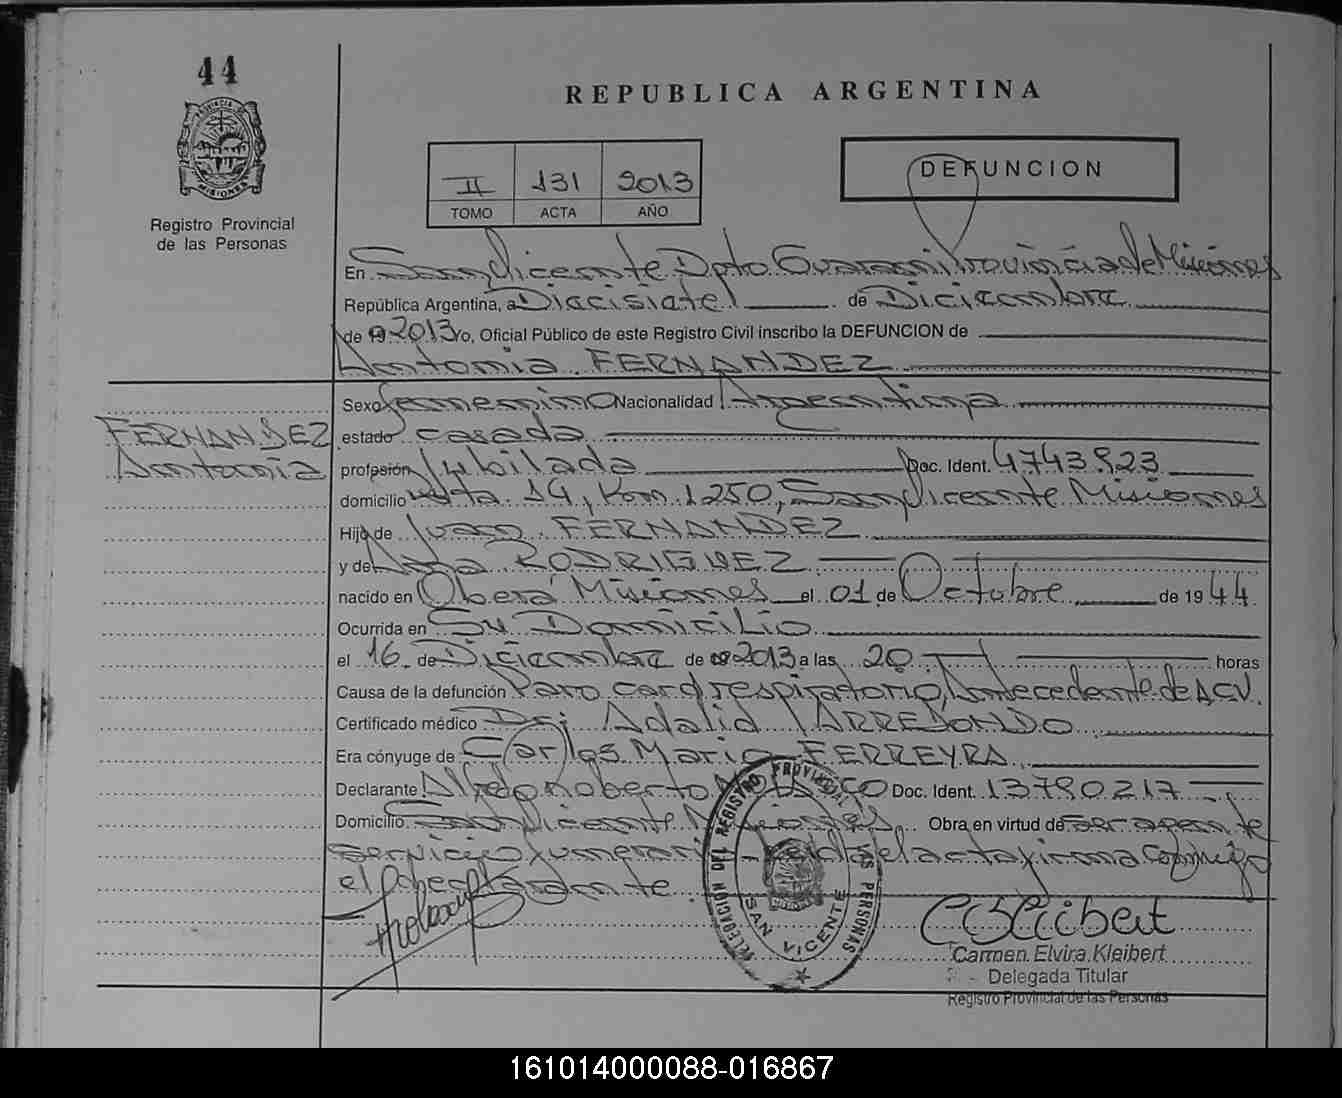 44
REPUBLICA ARGENTINA
PROVINCIA DE MISIONES
Registro Provincial
de las Personas
II 131 2013
TOMO ACTA AÑO
DEFUNCION
En San Vicente Dpto Guarani Provincia de Misiones
República Argentina, a Diecisiete de Diciembre
de 19 2013 Yo, Oficial Público de este Registro Civil inscribo la DEFUNCION de
Antonia FERNANDEZ
FERNANDEZ
Antonia
Sexo femenino Nacionalidad Argentina
estado casada
profesión Jubilada Doc. Ident. 4743.923
domicilio Ruta 14, Km 1250, San Vicente Misiones
Hijo de Juan FERNANDEZ
y de RODRIGUEZ
nacido en Oberá Misiones el 01 de Octubre de 1944
Ocurrida en Su Domicilio
el 16 de Diciembre de 2013 a las 20 horas
Causa de la defunción Paro cardrespiratorio, Antecedente de ACV.
Certificado médico Dr: Adalid ARREDONDO
Era cónyuge de Carlos Mario FERREYRA
Declarante Alfredo Roberto Doc. Ident. 13790217
Domicilio San Vicente Misiones Obra en virtud de ser agente
servicio funerario del acta firma conmigo
el declarante
DELEGACION DEL REGISTRO PROVINCIAL DE LAS PERSONAS
SAN VICENTE
Carmen Elvira Kleibert
Delegada Titular
Registro Provincial de las Personas
161014000088-016867